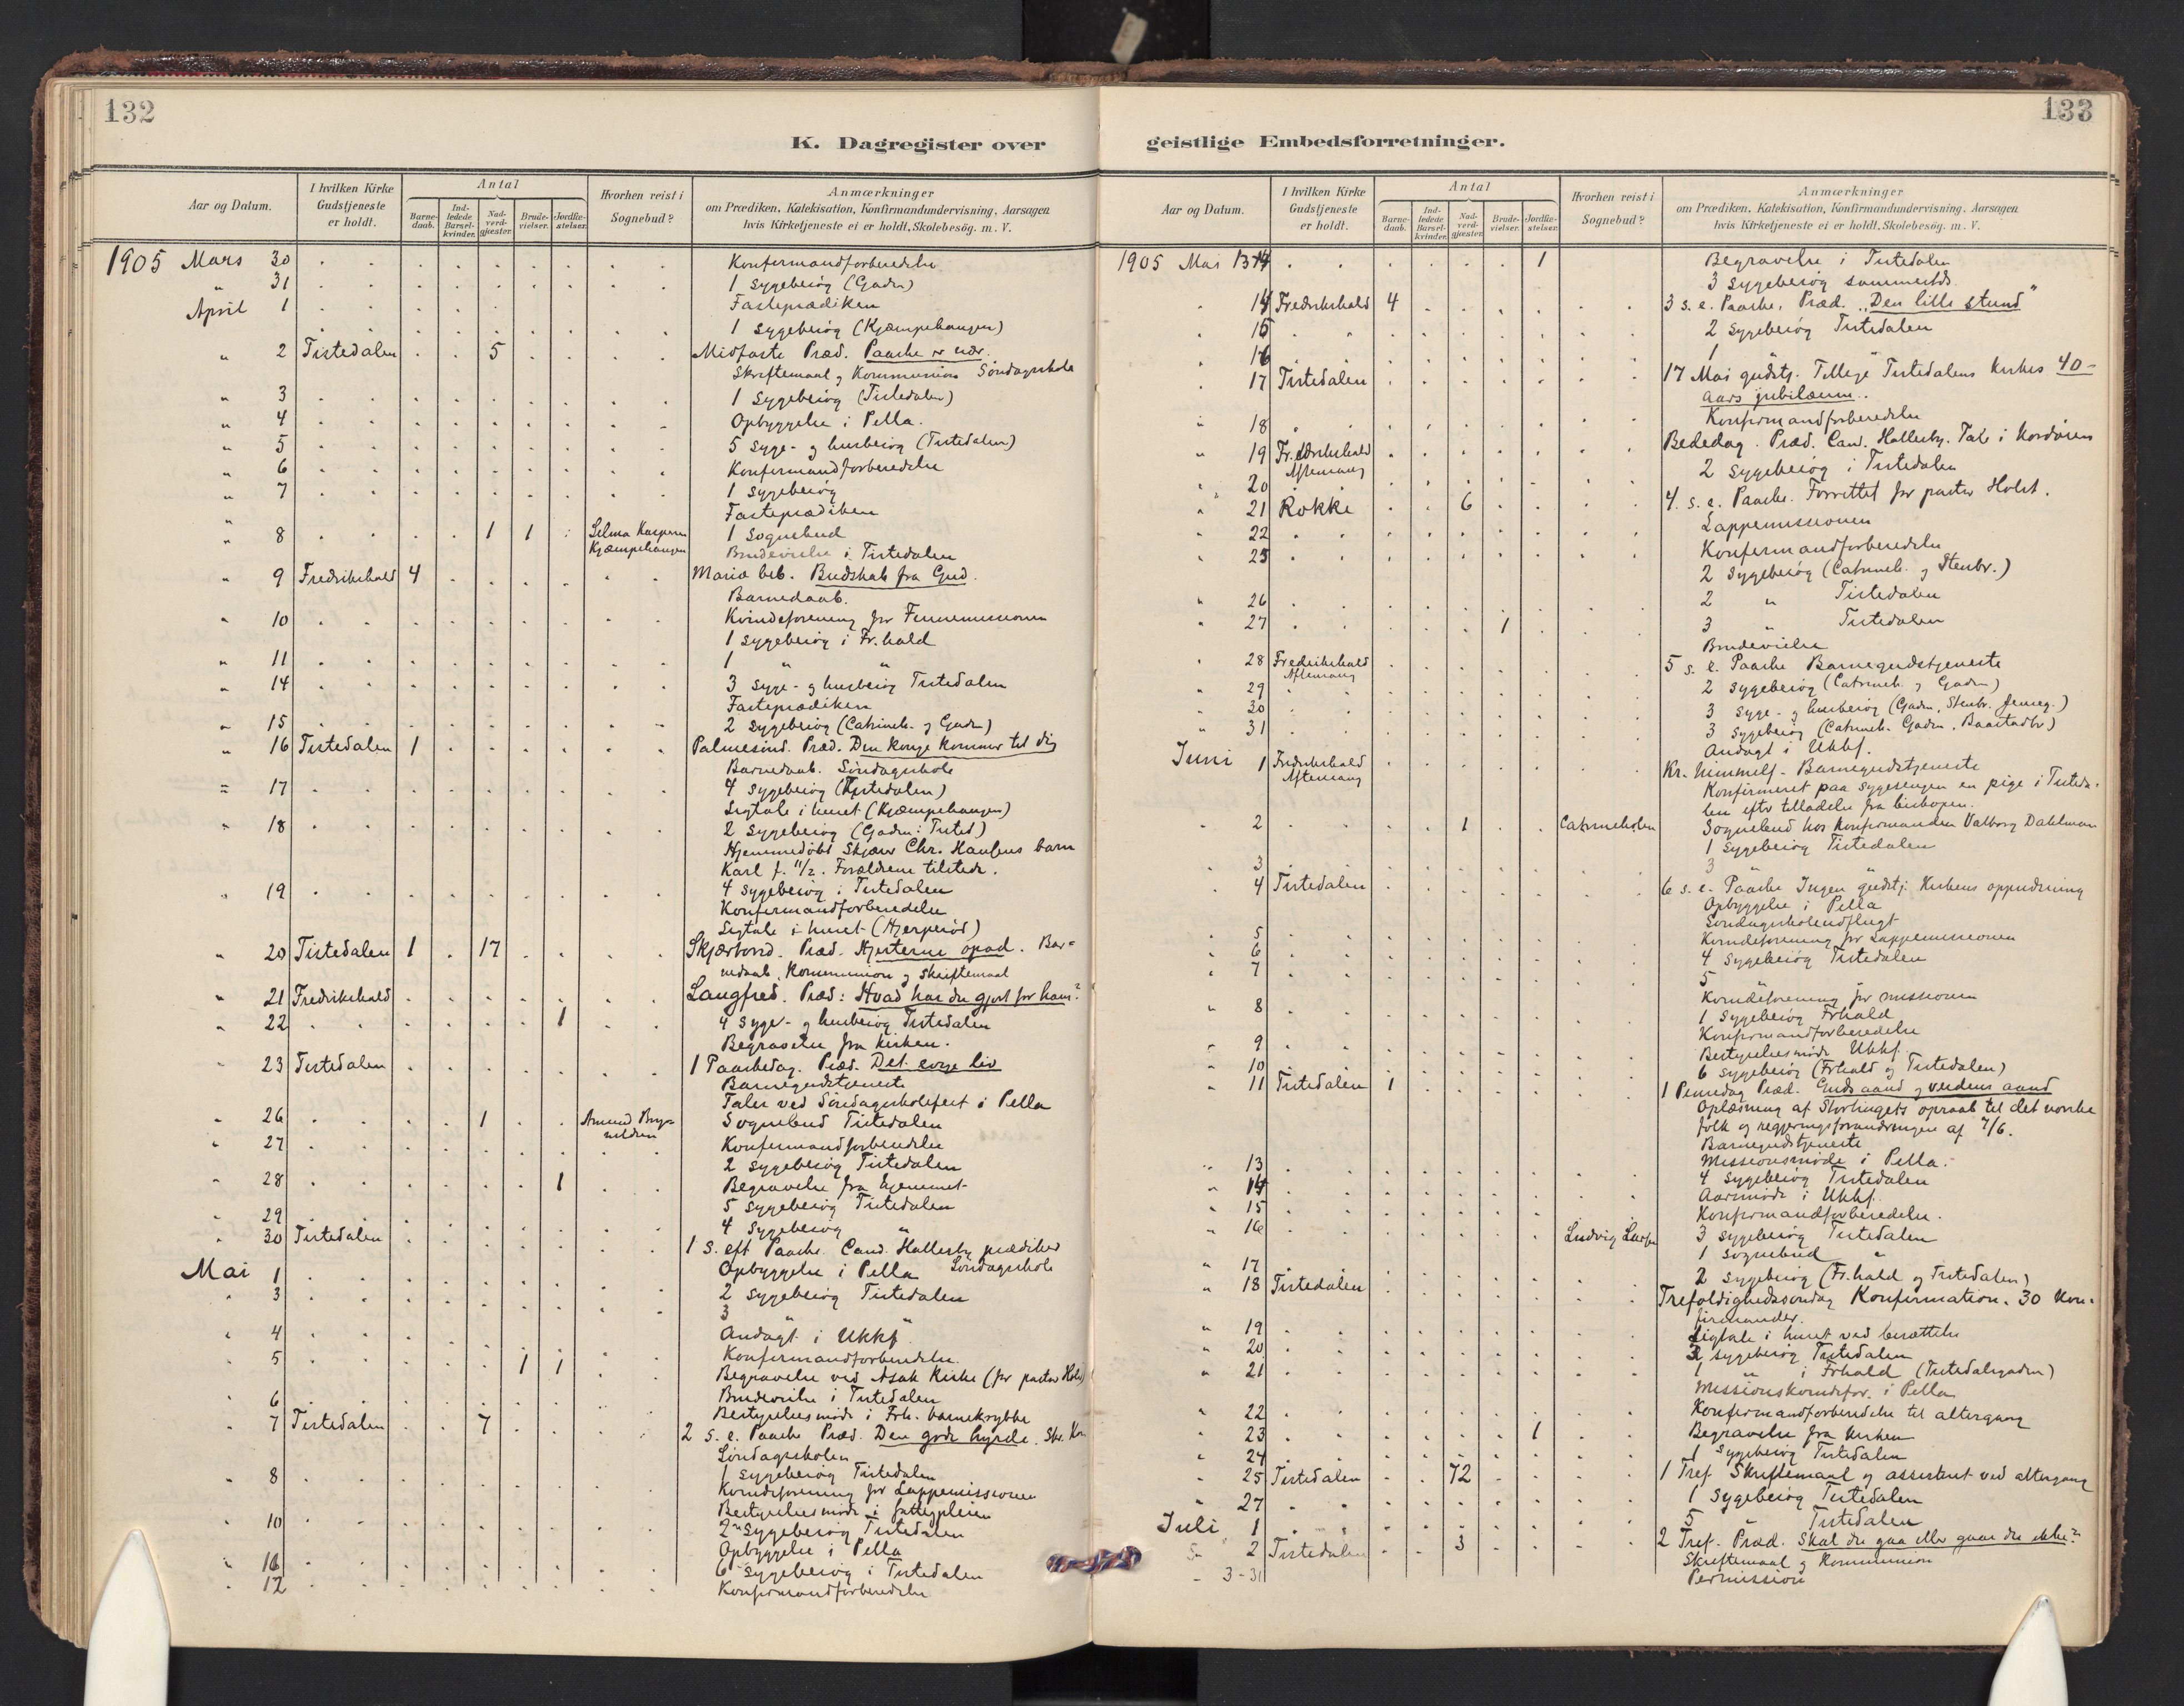 132
K. Dagregister over
Aar og Datum.
I hvilken Kirke Gudstjeneste er holdt.
Antal
Barne-daab.
Ind-ledede Barsel-kvinder.
Nad-verd-gjæster.
Brude-vielser.
Jordfæ-stelser.
Hvorhen reist i Sognebud?
Anmærkninger
om Prædiken, Katekisation, Konfirmandundervisning, Aarsagen
hvis Kirketjeneste ei er holdt, Skolebesøg. m. V.
1905 Mars 30 Konfirmandforberedelse
" 31 1 sygebesøg (Gaden)
April 1 Fasteprædiken
1 sygebesøg (Kjæmpehaugen)
" 2 Tistedalen 5 Midfaste Præd. Paaske er nær.
Skriftemaal og Kommunion Søndagsskole
" 3 1 sygebesøg (Tistedalen)
" 4 Opbyggelse i Pella.
" 5 5 syge- og husbesøg (Tistedalen)
" 6 Konfirmandforberedelse
" 7 1 sygebesøg
" Fasteprædiken
" 8 1 1 Selma Kaspersen 1 Sognebud
Kjæmpehaugen Brudevielse i Tistedalen
" 9 Fredrikshald 4 Mariæ beb. Budskab fra Gud.
Barnedaab.
" 10 Kvindeforening for Finnemissionen
1 sygebesøg i Fr.hald
" 11 1 " "
" 14 3 syge- og husbesøg Tistedalen
Fasteprædiken
" 15 2 sygebesøg (Catrineh. og Gaden)
" 16 Tistedalen 1 Palmesønd. Præd. Din konge kommer til dig
Barnedaab. Søndagsskole
" 17 4 sygebesøg (Tistedalen)
Ligtale i huset (Kjæmpehaugen)
" 18 2 sygebesøg (Gaden i Tisted)
Hjemmedøbt Skjærer Chr. Hansens barn
Karl f. 11/2. Forældrene tilstede.
" 19 4 sygebesøg i Tistedalen
Konfirmandforberedelse
Ligtale i huset (Hjerperød)
" 20 Tistedalen 1 17 Skjærtorsd. Præd. Hjerterne opad. Bar=
nedaab, Kommunion og skriftemaal
" 21 Fredrikshald Langfred. Præd: Hvad har du gjort for ham?
" 22 1 4 syge- og husbesøg Tistedalen
Begravelse fra kirken.
" 23 Tistedalen 1 Paaskedag. Præd. Det evige liv
Barnegudstjeneste
Taler ved Søndagsskolefest i Pella
" 26 1 Sognebud Tistedalen
" 27 Konfirmandforberedelse
2 sygebesøg Tistedalen
" 28 1 Begravelse fra hjemmet
5 sygebesøg Tistedalen
" 29 4 sygebesøg "
" 30 Tistedalen 1 S. eft Paaske. Cand. Hallesby prædiker
Mai 1 Opbyggelse i Pella Søndagsskole
" 3 2 sygebesøg Tistedalen
3 "
" 4 Andagt i Ukkf.
" 5 1 1 Konfirmandforberedelse.
Begravelse ved Asak Kirke (for pastor Holst)
" 6 Brudevielse i Tistedalen
Bestyrelsesmøde i Frh. barnekrybbe
" 7 Tistedalen 7 2 S. e. Paaske Præd. Den gode hyrde. Skr. Kom
Søndagsskolen
" 8 1 sygebesøg Tistedalen
Kvindeforening for Lappemissionen
Bestyrelsesmøde i fattigpleien
" 10 2 sygebesøg Tistedalen
Opbyggelse i Pella
" 16 6 sygebesøg i Tistedalen
" 12 Konfirmandforberedelse
133
geistlige Embedsforretninger.
Aar og Datum.
I hvilken Kirke Gudstjeneste er holdt.
Antal
Barne-daab.
Ind-ledede Barsel-kvinder.
Nad-verd-gjæster.
Brude-vielser.
Jordfæ-stelser.
Hvorhen reist i Sognebud?
Anmærkninger
om Prædiken, Katekisation, Konfirmandundervisning, Aarsagen
hvis Kirketjeneste ei er holdt, Skolebesøg. m. V.
1905 Mai 13 1 Begravelse i Tistedalen
3 sygebesøg sammesteds
" 14 Fredrikshald 4 3 s. e. Paaske. Præd. "Den lille stund"
" 15 2 sygebesøg Tistedalen
" 16 1 "
" 17 Tistedalen 17 Mai gudstj. Tillige Tistedalens kirkes 40-
aars jubilæum.
" 18 Konfirmandforberedelse
" 19 Fredrikshald Bededag. Præd. Cand. Hallesby. Tale i kordøren
Aftensang
" 20 2 sygebesøg i Tistedalen
" 21 Rokke 6 4. s. e. Paaske. Forrettet for pastor Holst.
" 22 Lappemissionen
" 25 Konfirmandforberedelse
2 sygebesøg (Catrineh. og Stenbr.)
" 26 2 " Tistedalen
" 27 1 3 " Tistedalen
Brudevielse
" 28 Fredrikshald 5 s. e. Paaske Barnegudstjeneste
Aftensang
" 29 2 sygebesøg (Catrineh. og Gaden)
" 30 3 syge- og husbesøg (Gaden, Stenbr. )
" 31 3 sygebesøg (Catrineh. Gaden, Baastadbr)
Andagt i Ukkf.
Juni 1 Fredrikshald Kr. himmelf. Barnegudstjeneste
Aftensang Konfirmeret paa sygesengen en pige i Tisteda-
len efter tilladelse fra biskopen.
" 2 1 Catrineholm Sognebud hos konfirmanden Valborg Dahlman
1 sygebesøg Tistedalen
" 3 3 "
" 4 Tistedalen 6 s. e. Paaske Ingen gudstj. Kirkens oppudsning
Opbyggelse i Pella
Søndagsskoleudflugt
" 5 Kvindeforening for Lappemissionen
" 6 4 sygebesøg Tistedalen
" 7 5 "
Kvindeforening for missionen
" 8 1 sygebesøg Frhald
Konfirmandforberedelse
" 9 Bestyrelsesmøde Ukkf.
" 10 6 sygebesøg (Frhald og Tistedalen)
" 11 Tistedalen 1 1 Pinsedag Præd. Guds aand og verdens aand
Oplæsning af Storthingets opraab til det norske
folk og regjeringsforandringen af 7/6.
Barnegudstjeneste
" 13 Missionsmøde i Pella.
" 14 4 sygebesøg Tistedalen
Aarsmøde i Ukkf.
" 15 Konfirmandforberedelse.
" 16 Ludvig Larsen 3 sygebesøg Tistedalen
1 sognebud "
" 17 2 sygebesøg (Fr.hald og Tistedalen)
" 18 Tistedalen Trefoldighedssøndag Konfirmation. 30 Kon-
firmander.
" 19 Ligtale i huset ved 
" 20 2 sygebesøg Tistedalen
" 21 1 " i Frhald (Tistedalsgaden)
Missionskvindefor. i Pella
" 22 Konfirmandforberedelse til altergang
" 23 1 Begravelse fra kirken
" 24 1 sygebesøg Tistedalen
" 25 Tistedalen 72 1 Tref Skriftemaal og assisteret ved altergang
" 27 1 sygebesøg Tistedalen
Juli 1 5 " Tistedalen
S. 2 Tistedalen 3 2 Tref. Præd. Skal du gaa eller gaar du ikke?
Skriftemaal og Kommunion
" 3-31 Permission